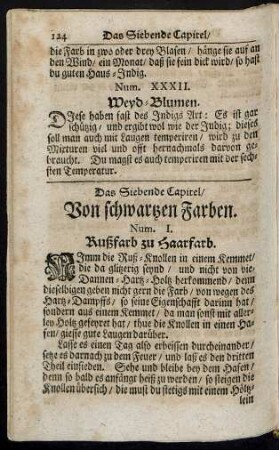 124 Das Siebende Capitel/
die Farb in zwo oder drey Blasen/ hänge sie auf an
den Wind/ ein Monat/ daß sie fein dick wird/ so hast
du guten Haus-Indig.
Num. XXXII.
Weyd-Blumen.
DIese haben fast des Indigs Art: Es ist gar
schützig/ und ergibt wol wie der Indig; dieses
soll man auch mit Laugen temperiren/ wird zu den
Mixturen viel und offt hernachmals darvon ge-
braucht. Du magst es auch temperiren mit der sech-
sten Temperatur.
Das Siebende Capitel/
Von schwartzen Farben.
Num. I.
Rußfarb zu Haarfarb.
NImm die Ruß-Knollen in einem Kemmet/
die da glitzerig seynd/ und nicht von die-
Dannen-Hartz-Holtz herkommend/ denn
dieselbigen geben nicht gern die Farb/ von wegen des
Hartz-Dampffs/ so seine Eigenschafft darinn hat/
sondern aus einem Kemmet/ da man sonst mit aller-
ley Holtz gefeyret hat/ thue die Knollen in einen Ha-
fen/ giesse gute Laugen darüber.
Lasse es einen Tag also erbeissen durcheinander/
setze es darnach zu dem Feuer/ und laß es den dritten
Theil einsieden. Sehe und bleibe bey dem Hafen/
denn so bald es anfängt heiß zu werden/ so steigen die
Knollen übersich/ die must du stetigs mit einem Höltz-
lein